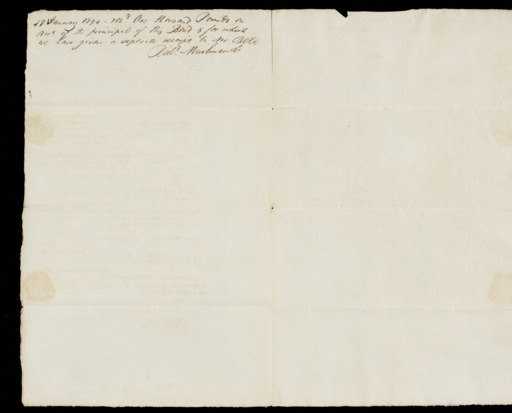 January 1794 - Rec^d One Thousand Pounds on
Acc^t of the principal of this Bond & for which
we have given a separate receipt
Rob^t